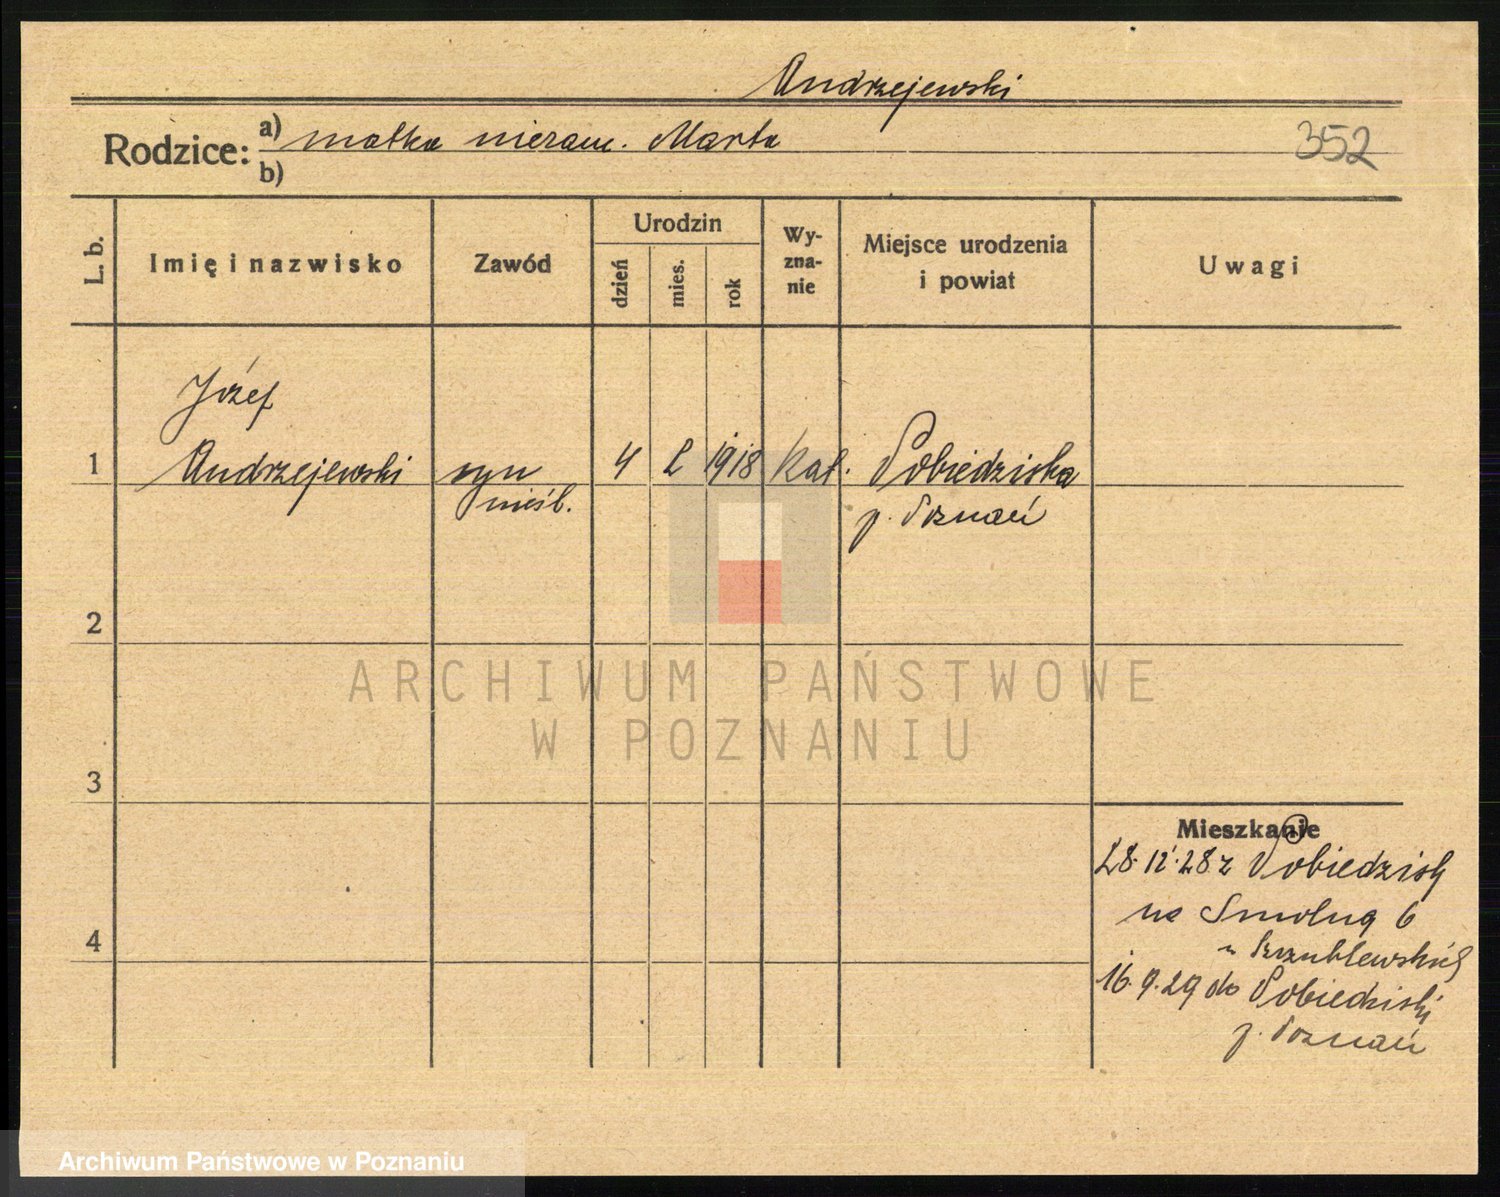 Andrzejewski
Rodzice: a) matka niezam. Marta
352
b)
L. b.
Imię i nazwisko
Zawód
Urodzin
dzień
mies.
rok
Wy-
zna-
nie
Miejsce urodzenia
i powiat
Uwagi
Józef
1 Andrzejewski syn 4 2 1918 kat. Pobiedziska
nieśl. p. Poznań
2
ARCHIWUM PAŃSTWOWE
W POZNANIU
3
Mieszkanie
28.12.28 z Pobiedzisk
na Smolną 6
4
16.9.29 do Pobiedziski
p. Poznań
Archiwum Państwowe w Poznaniu